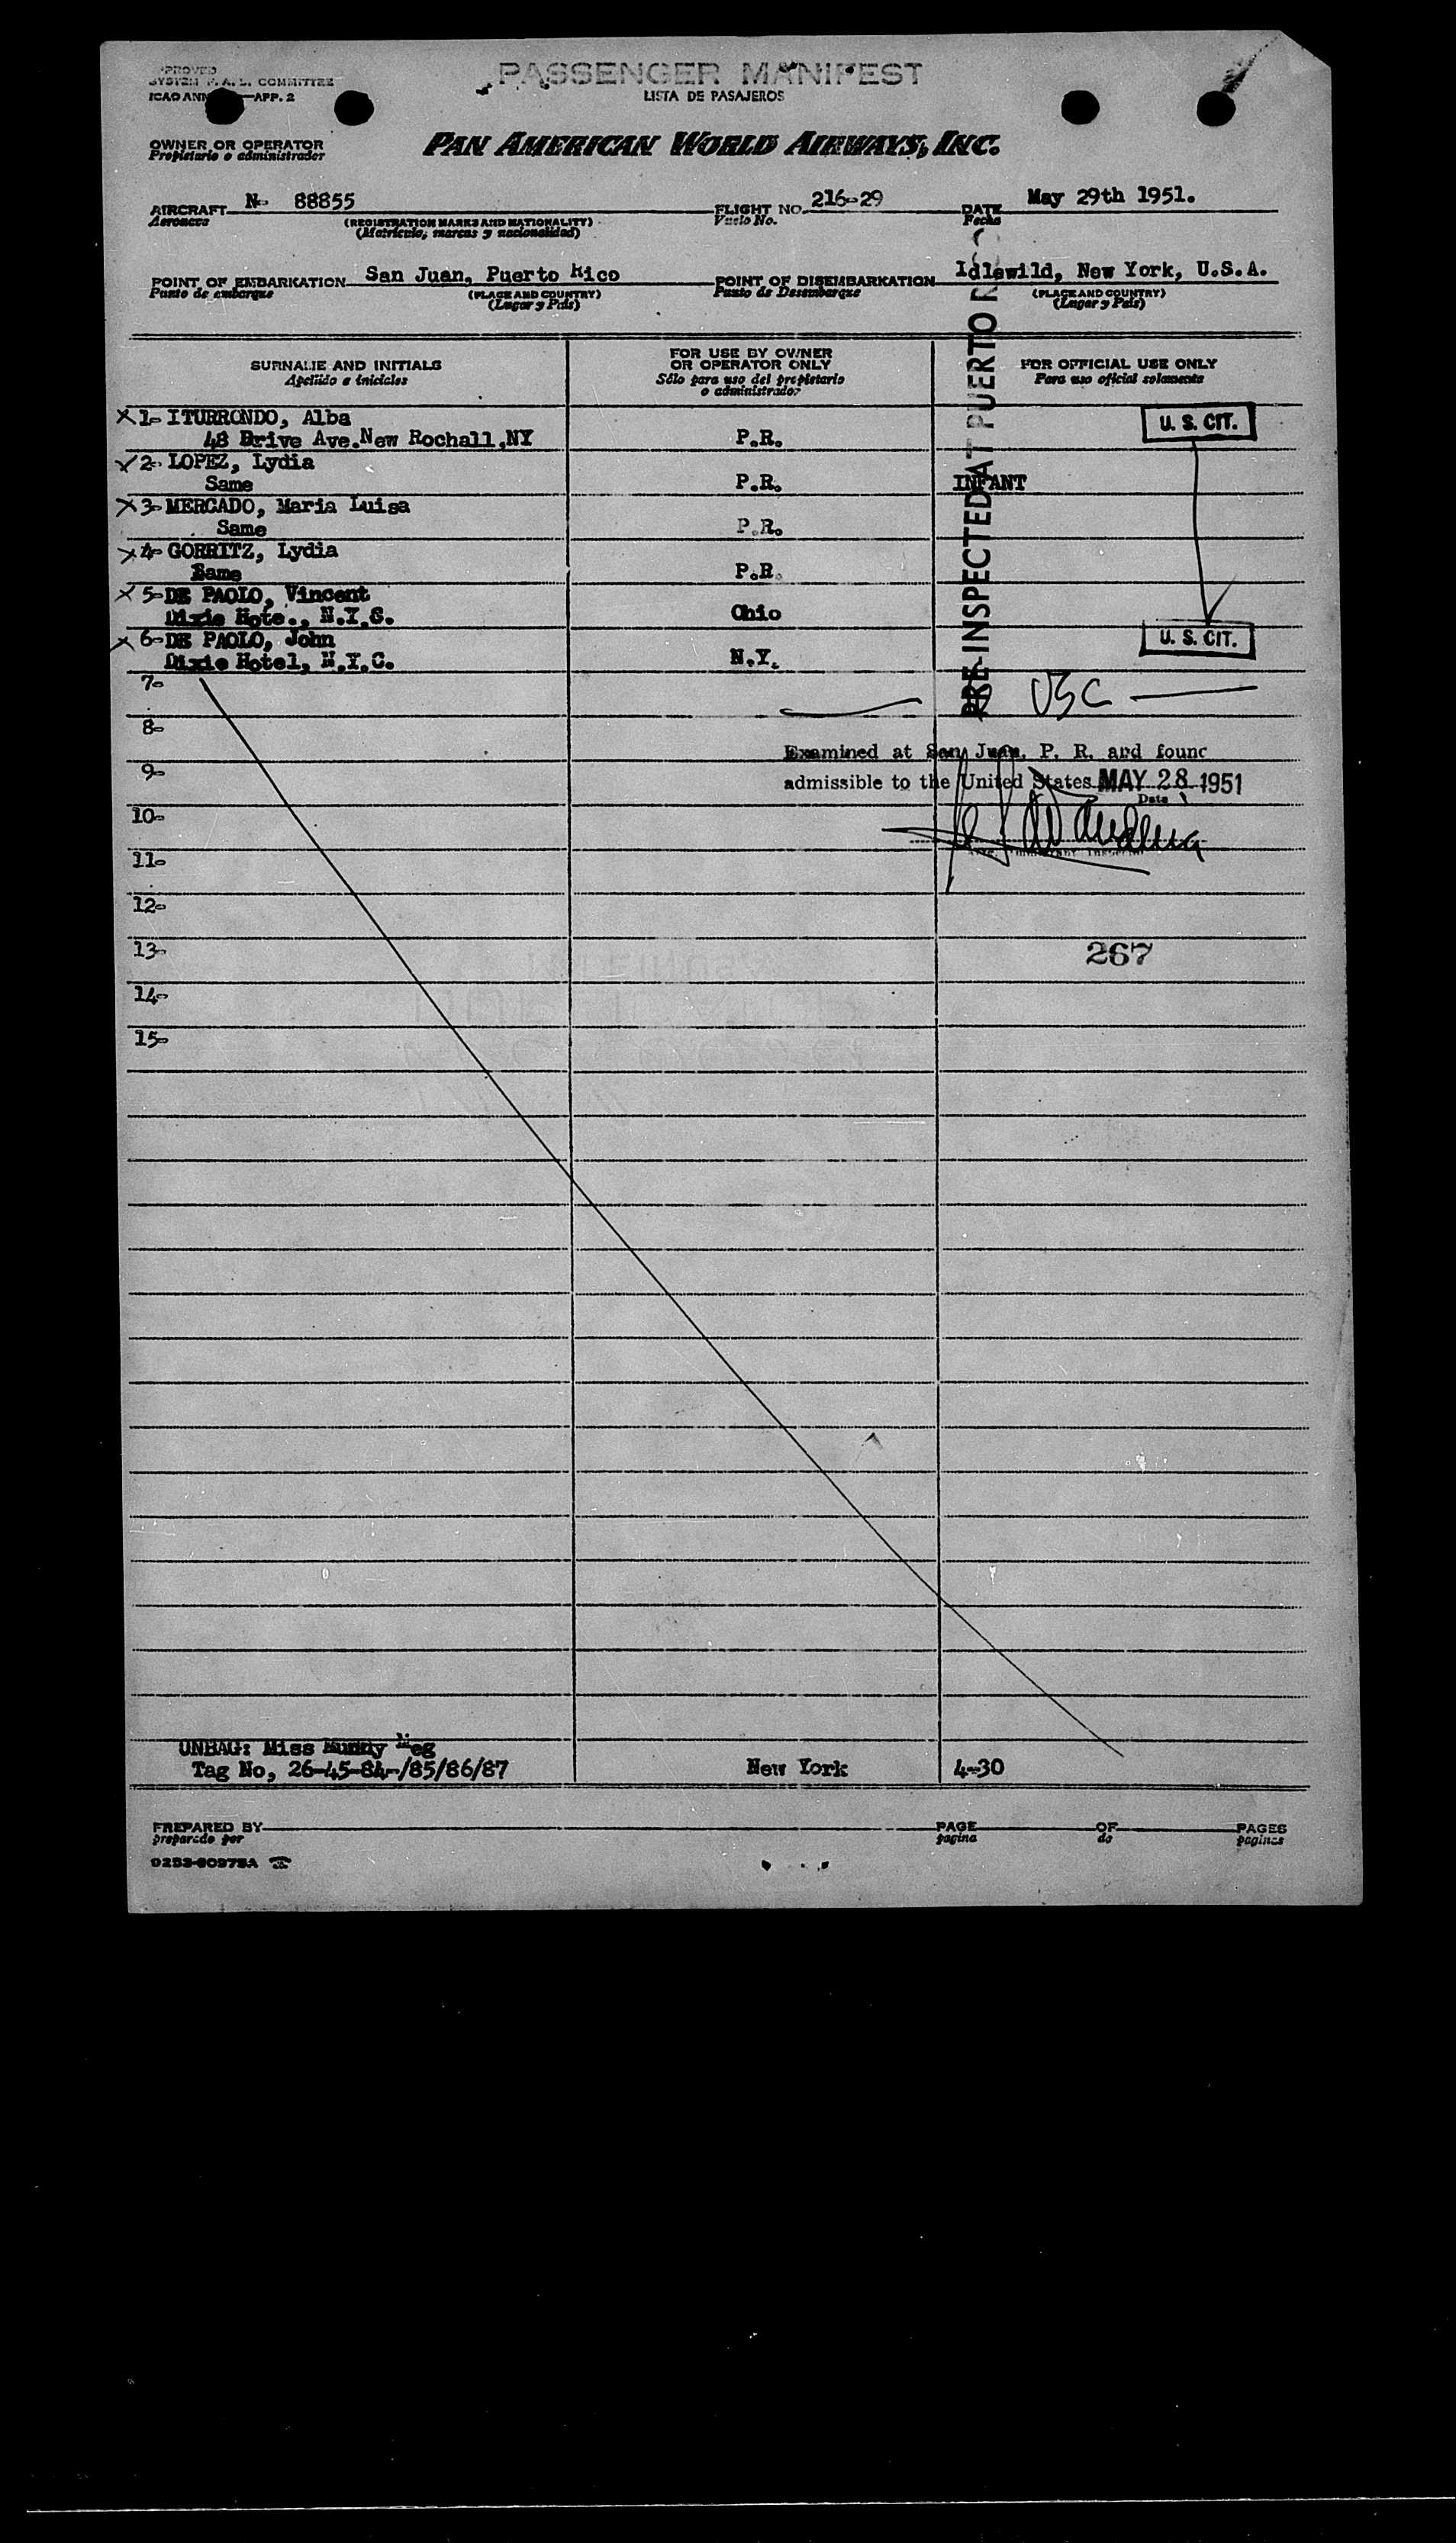 PROVED
PASSENGER MANIFEST
SYSTEM F. A. L. COMMITTEE
LISTA DE PASAJEROS
ICAO ANN APP. 2
OWNER OR OPERATOR
Propietario o administrador
PAN AMERICAN WORLD AIRWAYS, INC.
AIRCRAFT N- 88855 FLIGHT NO. 216-29 DATE May 29th 1951.
Aeronave (REGISTRATION MARKS AND NATIONALITY) Vuelo No. Fecha
(Matricula, marcas y nacionalidad)
POINT OF EMBARKATION San Juan, Puerto Rico POINT OF DISEMBARKATION Idlewild, New York, U.S.A.
Punto de embarque (PLACE AND COUNTRY) Punto de Desembarque (PLACE AND COUNTRY)
(Lugar y País) (Lugar y País)
SURNAME AND INITIALS FOR USE BY OWNER OR OPERATOR ONLY FOR OFFICIAL USE ONLY
Apellido e iniciales Sólo para uso del propietario o administrador Para uso oficial solamente
PRE-INSPECTED AT PUERTO R
X 1- ITURRONDO, Alba U. S. CIT.
48 Drive Ave.New Rochall,NY P.R.
X 2- LOPEZ, Lydia
Same P.R. INFANT
X 3- MERCADO, Maria Luisa
Same P.R.
X 4- GORRITZ, Lydia
Same P.R.
X 5- DE PAOLO, Vincent
Dixie Hote., N.Y.S. Ohio
X 6- DE PAOLO, John U. S. CIT.
Dixie Hotel, N.Y.C. N.Y.
7-
USC
8-
Examined at San Juan, P. R. and found
9-
admissible to the United States MAY 28 1951
Date
10-
11-
12-
13-
267
14-
15-
UNBAG: Miss Mundy Meg
Tag No, 26-45-84-/85/86/87 New York 4-30
PREPARED BY PAGE OF PAGES
preparado por pagina de paginas
0253-60375A